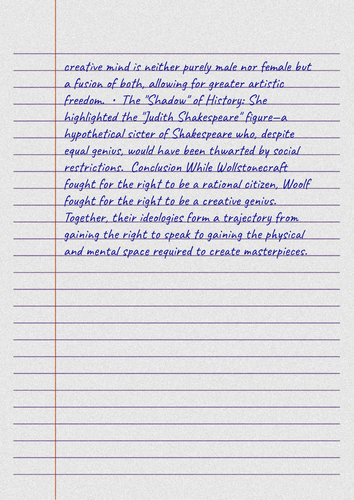 creative mind is neither purely male nor female but
a fusion of both, allowing for greater artistic
freedom. • The "Shadow" of History: She
highlighted the "Judith Shakespeare" figure—a
hypothetical sister of Shakespeare who, despite
equal genius, would have been thwarted by social
restrictions. Conclusion While Wollstonecraft
fought for the right to be a rational citizen, Woolf
fought for the right to be a creative genius.
Together, their ideologies form a trajectory from
gaining the right to speak to gaining the physical
and mental space required to create masterpieces.